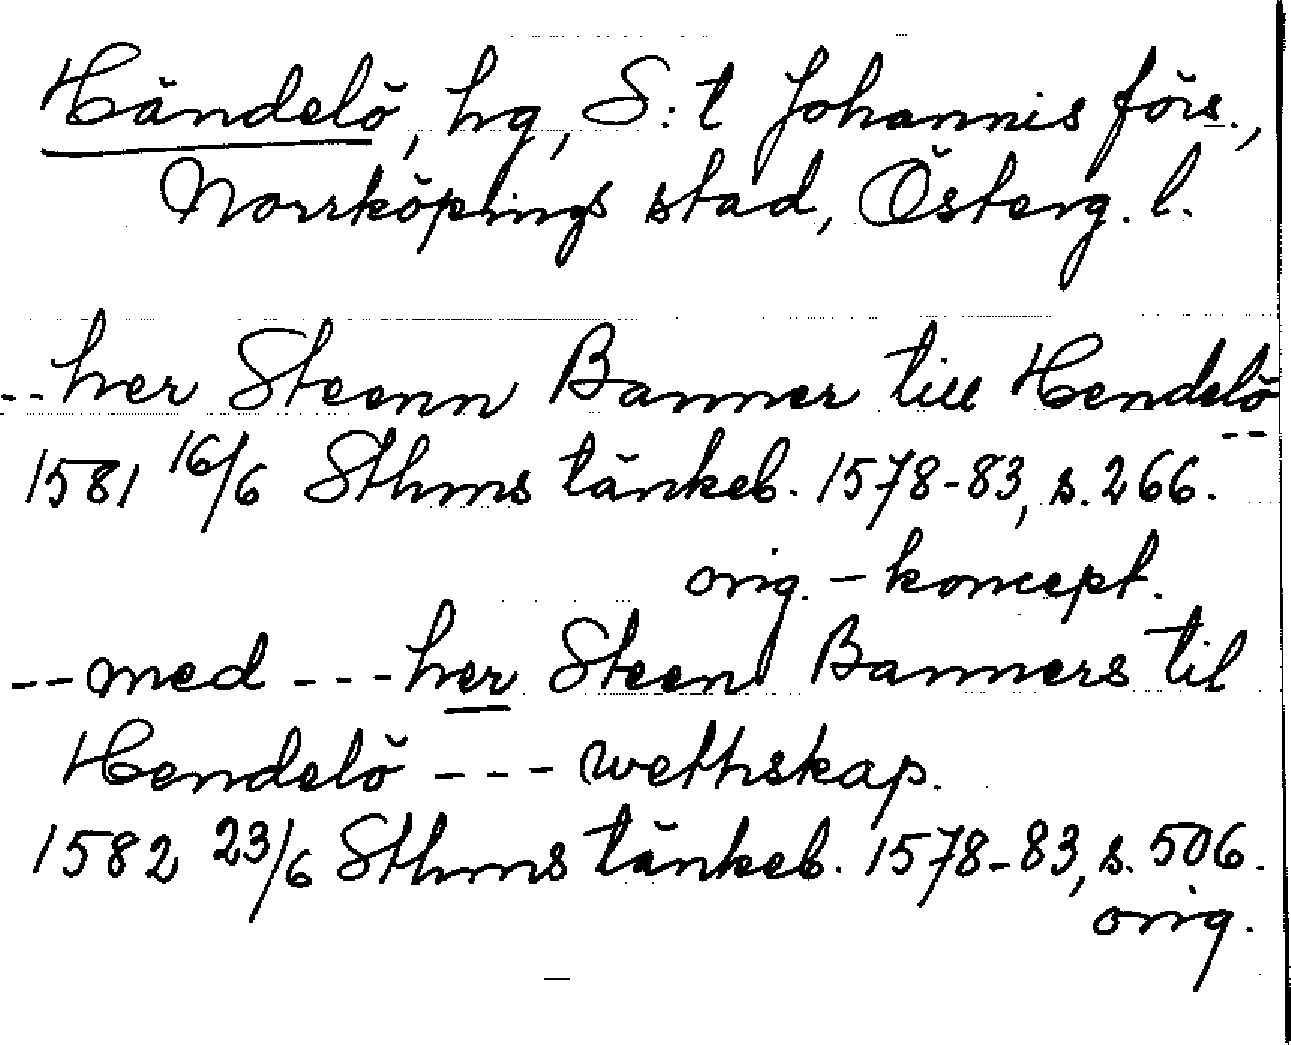 Händelö, hg, S:t Johannis förs.,
Norrköpings stad, Österg. l.
-- her Steenn Banner till Hendelö --
1581 16/6 Sthms tänkeb. 1578-83, s. 266.
orig.-koncept.
-- med --- her Steen Banners til
Hendelö --- wethskap.
1582 23/6 Sthms tänkeb. 1578-83, s. 506.
orig.